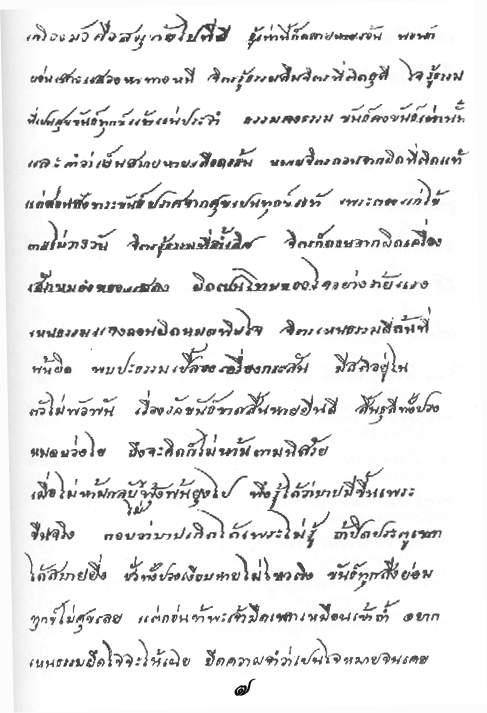 เครื่องมัวคือสมุทัยไปที่ดี รู้เท่านี้ก็คลายหายร้อน พอพัก
ผ่อนเสาะแสวงหาทางหนี จิตรู้ธรรมลืมจิตที่ติดธุลี ใจรู้ธรรม
ที่เปนสุขขันธ์ทุกข์แท้แน่ประจำ ธรรมคงธรรม ขันธ์คงขันธ์เท่านั้น
และคำว่าเย็นสบายหายเดือดร้อน หมายจิตถอนจากผิดที่ติดแท้
แต่ส่วนสังขารขันธ์ปราศจากสุขเปนทุกข์แท้ เพราะต้องแก่ไข้
ตายไม่วายวัน จิตรู้ธรรมที่ล้ำเลิศ จิตก็ถอนจากผิดเครื่อง
เศร้าหมองของแสลง ผิดเปนโทษของใจอย่างร้ายแรง
เหนธรรมแจ้งถอนผิดหมดพิษใจ จิตเหนธรรมดีล้นที่
พ้นผิด พบปะธรรมเปลื้องเครื่องกระสัน มีสติอยู่ใน
ตัวไม่พัวพัน เรื่องรักขันธ์ขาดสิ้นหายยินดี สิ้นธุลีทั้งปวง
หมดห่วงใย ถึงจะคิดก็ไม่ห้ามตามนิสัย
เมื่อไม่ห้ามกลับไม่ฟุ้งพ้นยุ่งไป พึงรู้ได้ว่าบาปมีขึ้นเพราะ
ขืนจริง ตอบว่าบาปเกิดได้เพราะไม่รู้ ถ้าปิดประตูเขลา
ได้สบายยิ่ง ชั่วทั้งปวงเงียบหายไม่ไหวติง ขันธ์ทุกสิ่งย่อม
ทุกข์ไม่สุขเลย แต่ก่อนข้าพะเจ้ามืดเขลาเหมือนเข้าถ้ำ อยาก
เหนธรรมยึดใจจะให้เฉย ยึดความจำว่าเปนใจหมายจนเคย
๗